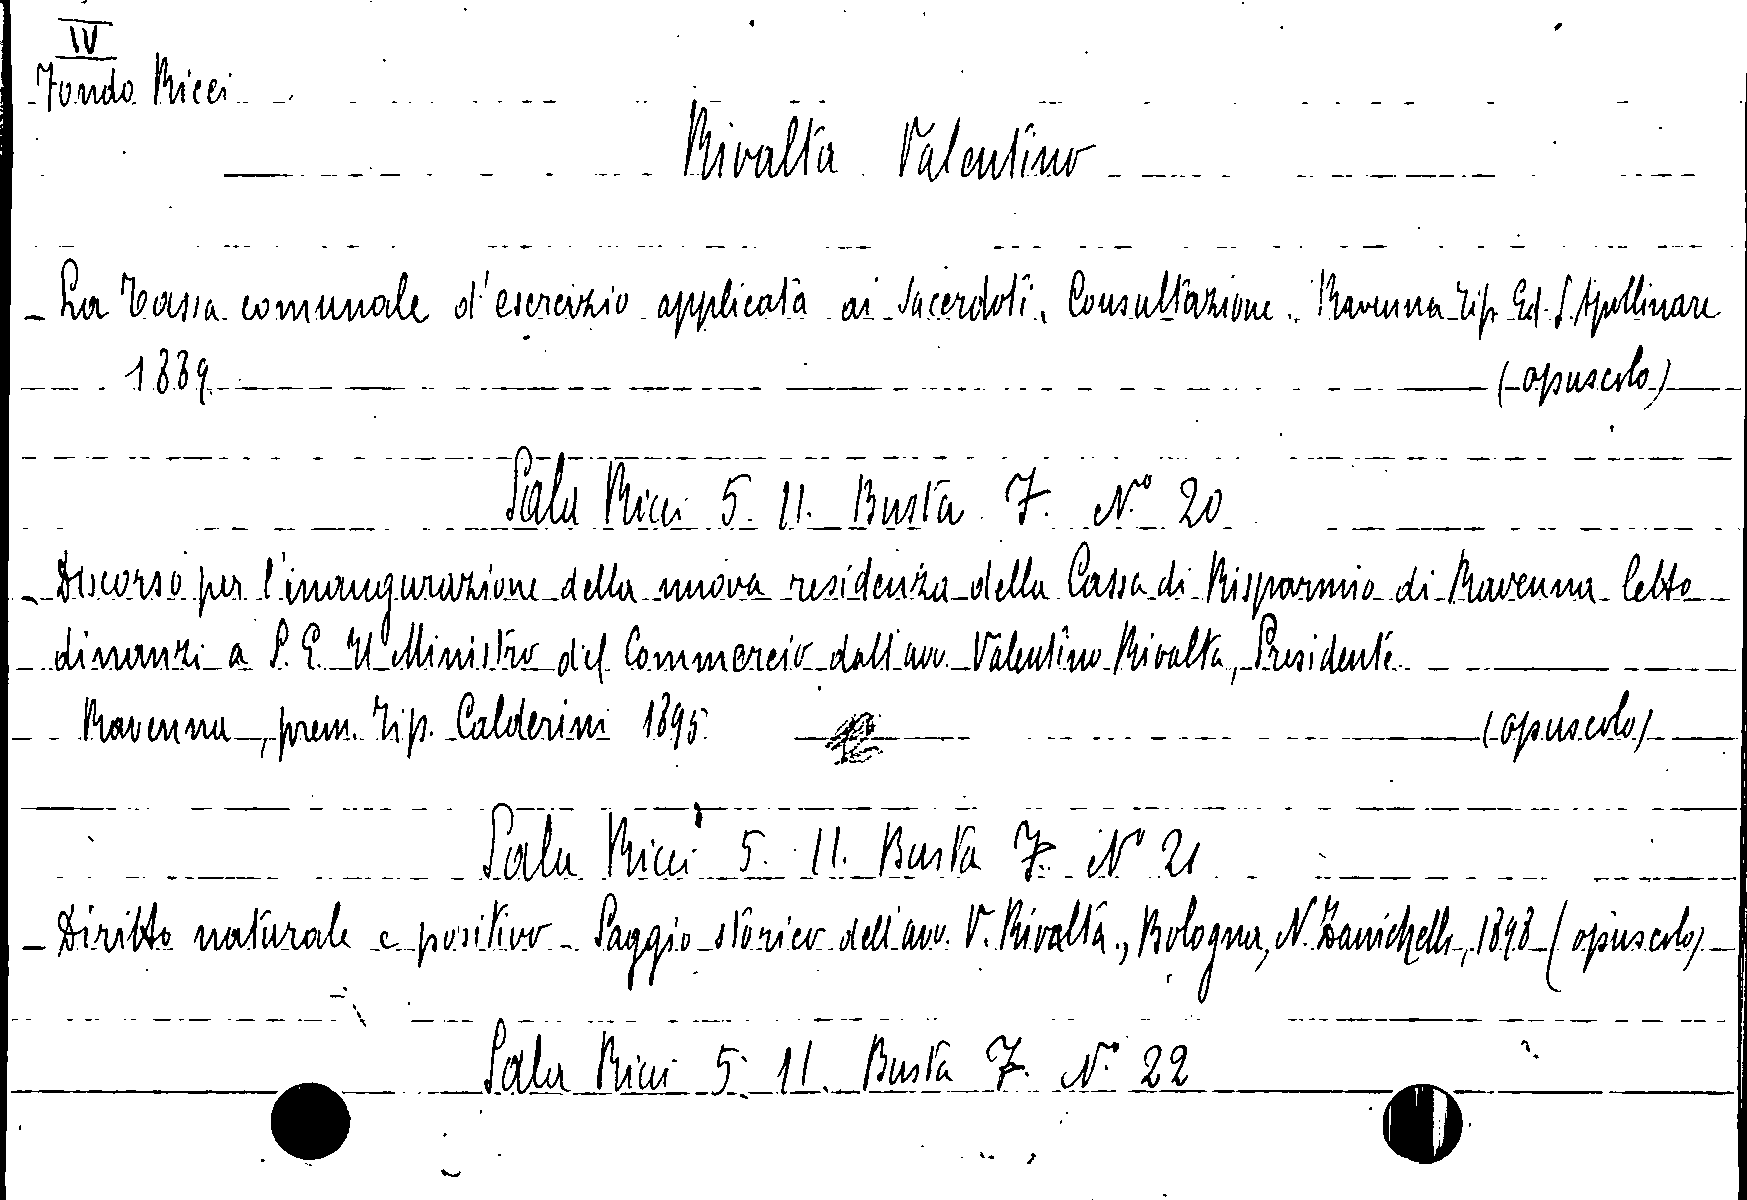 IV
Fondo Ricci
Rivalta Valentino
- La Tassa comunale d'esercizio applicata ai sacerdoti. Consultazione. Ravenna Tip. Ed. S. Apollinare
1889 (opuscolo)
Sala Ricci 5. 11. Busta 7. N° 20
- Discorso per l'inaugurazione della nuova residenza della Cassa di Risparmio di Ravenna letto
dinanzi a S. E. Il Ministro del Commercio dall'avv. Valentino Rivalta, Presidente
Ravenna, prem. Tip. Calderini 1895 (opuscolo)
Sala Ricci 5. 11. Busta 7. N° 21
- Diritto naturale e positivo - Saggio storico dell'avv. V. Rivalta., Bologna, N. Zanichelli, 1898 (opuscolo)
Sala Ricci 5. 11. Busta 7. N° 22